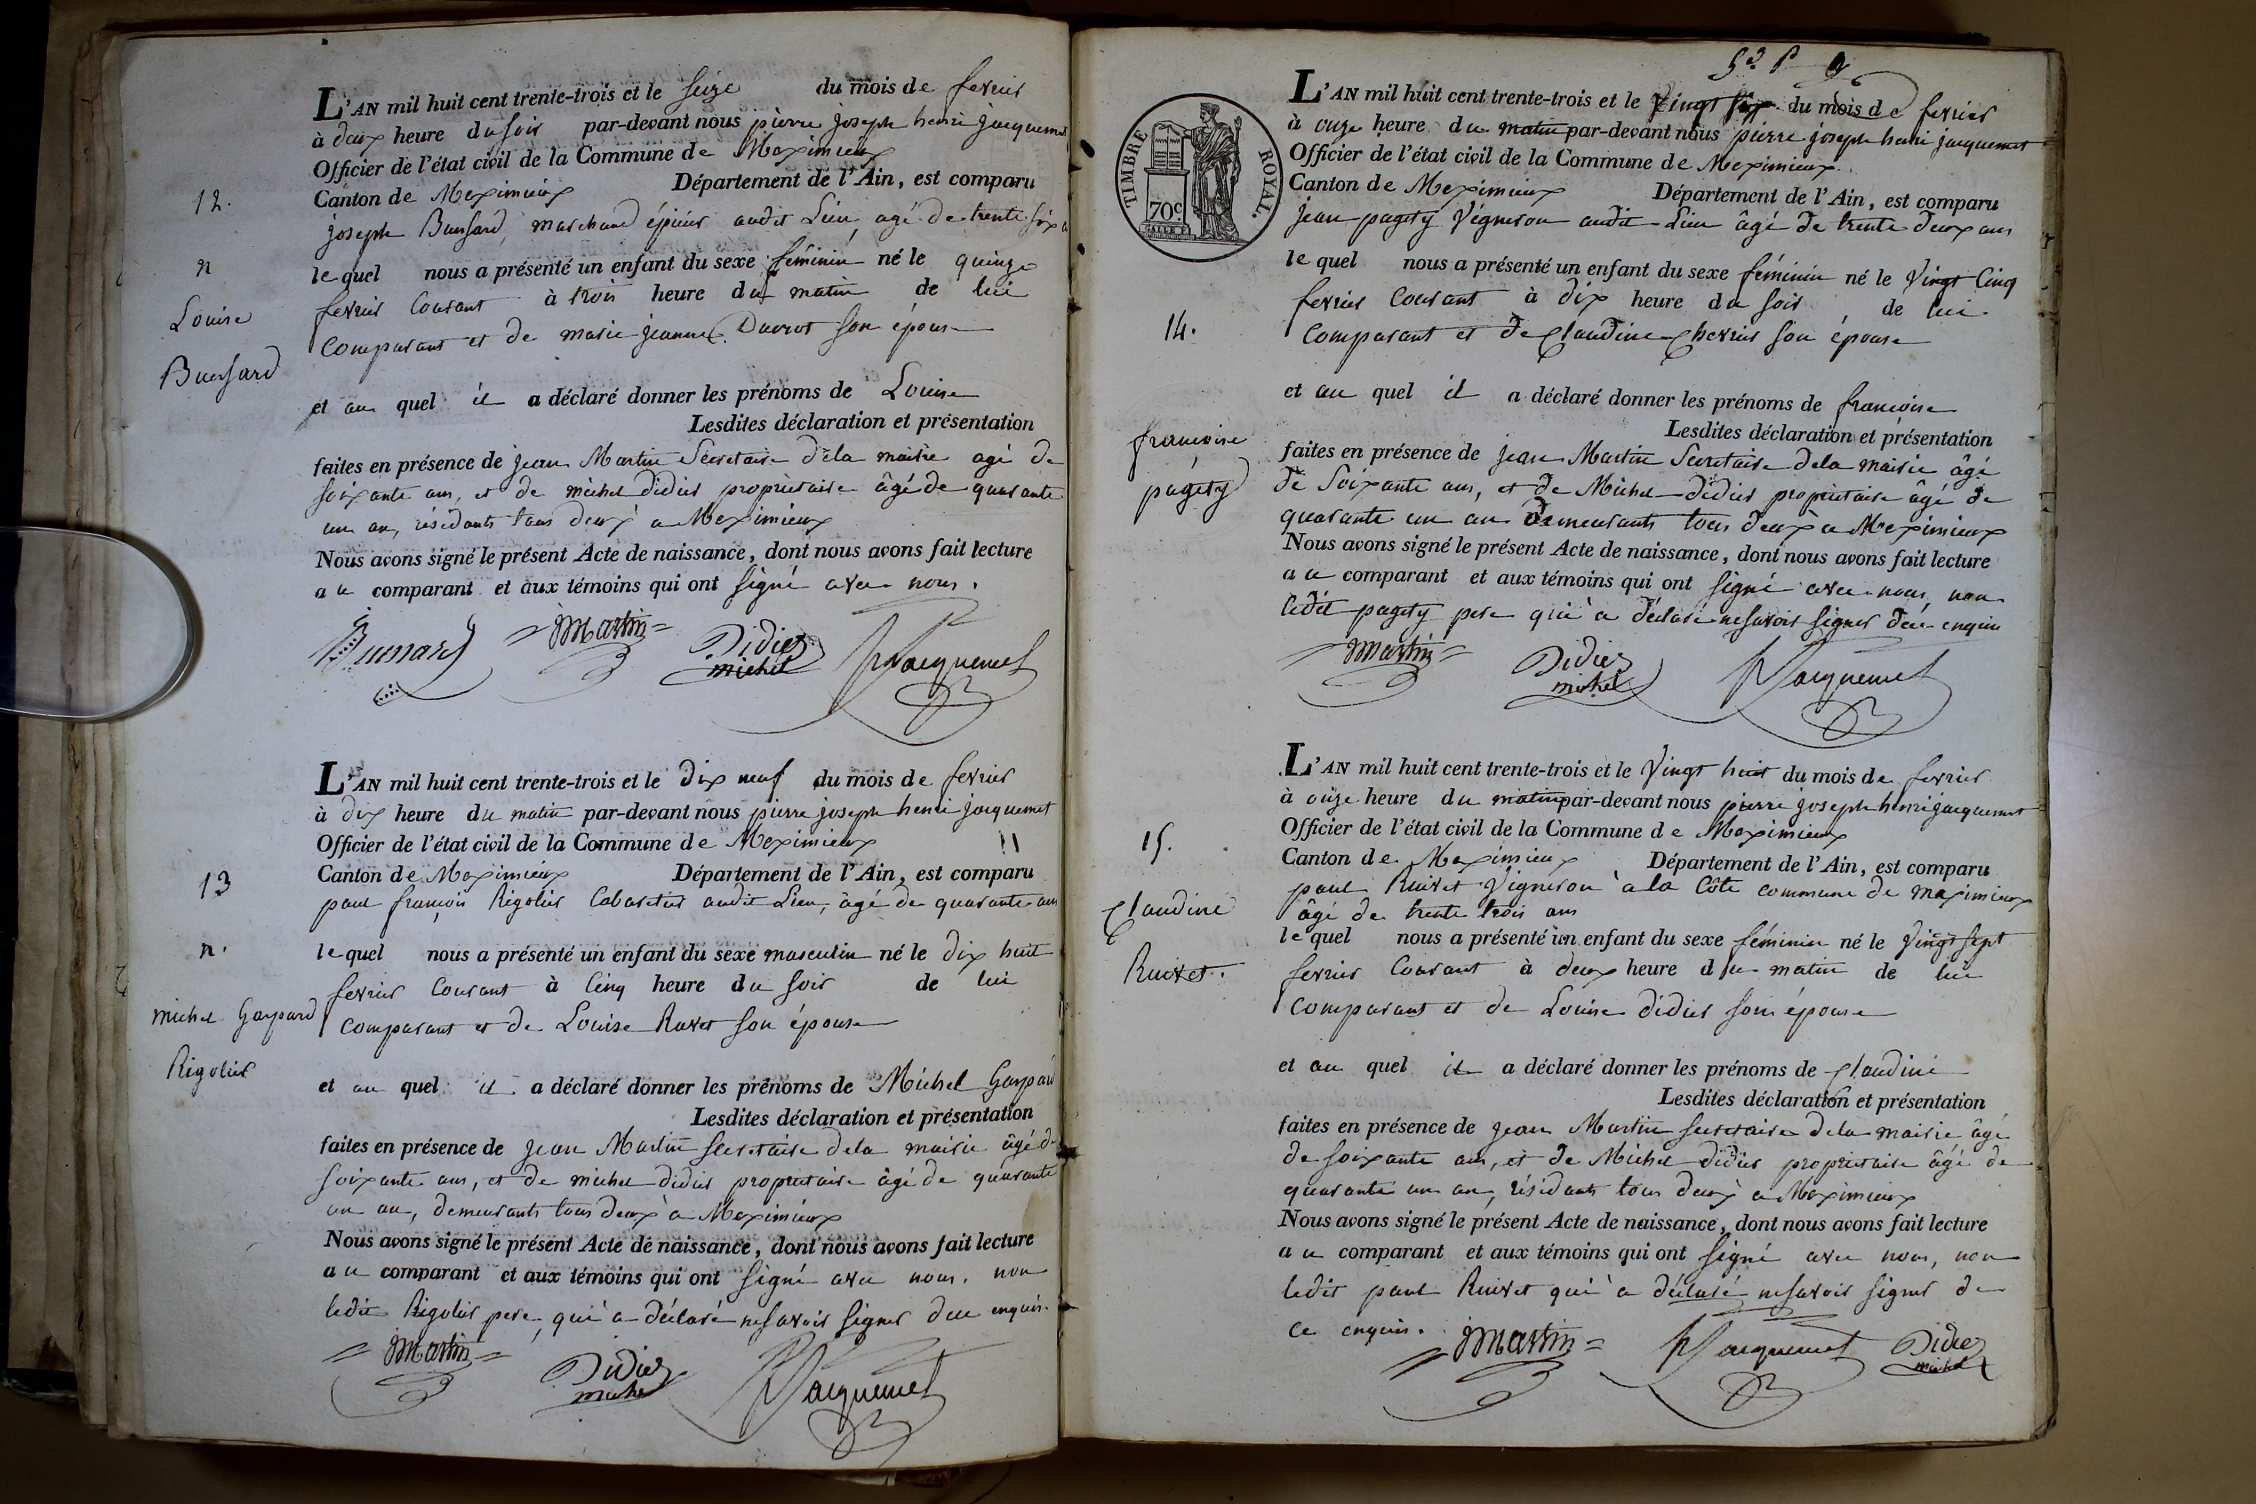 L'AN mil huit cent trente-trois et le seize du mois de fevrier
à deux heure du soir par-devant nous pierre joseph henri jacquemet
Officier de l'état civil de la Commune de Meximieux
Canton de Meximieux Département de l'Ain, est comparu
12.
joseph marchand épicier audit Lieu, agé de trente six a
n
le quel nous a présenté un enfant du sexe féminin né le quinze
Louise
fevrier Courant à trois heure du matin de lui
comparant et de marie jeanne son épouse
et au quel il a déclaré donner les prénoms de Louise
Lesdites déclaration et présentation
faites en présence de jean Martin Secretaire dela mairie agé de
soixante ans, et de michel didier propriétaire âgé de quarante
un an, résidants tous deux a Meximieux
Nous avons signé le présent Acte de naissance, dont nous avons fait lecture
au comparant et aux témoins qui ont signé avec nous.
JMartin
Didier
michel
Jacquemet
L'AN mil huit cent trente-trois et le dix neuf du mois de fevrier
à dix heure du matin par-devant nous pierre joseph henri jacquemet
Officier de l'état civil de la Commune de Meximieux
Canton de Meximieux Département de l'Ain, est comparu
13
paul françois Rigolier Cabaretier audit Lieu, âgé de quarante ans
n.
le quel nous a présenté un enfant du sexe masculin né le dix huit
fevrier Courant à Cinq heure du soir de lui
michel Gaspard
comparant et de Louise Ravet son épouse
Rigolier
et au quel il a déclaré donner les prénoms de Michel Gaspard
Lesdites déclaration et présentation
faites en présence de jean Martin secretaire dela mairie âgé de
soixante ans, et de michel didier propriétaire âgé de quarante
un an, demeurants tous deux à Meximieux
Nous avons signé le présent Acte de naissance, dont nous avons fait lecture
au comparant et aux témoins qui ont signé avec nous. non
ledit Rigolier pere, qui a déclaré nesavoir signer dece enquis.
JMartin
Didier
michel
Jacquemet
TIMBRE ROYAL.
70c.
L'AN mil huit cent trente-trois et le vingt six du mois de fevrier
à onze heure du matin par-devant nous pierre joseph henri jacquemet
Officier de l'état civil de la Commune de Meximieux
Canton de Meximieux Département de l'Ain, est comparu
jean pagety Vigneron audit Lieu âgé de trente deux ans
le quel nous a présenté un enfant du sexe féminin né le Vingt Cinq
fevrier Courant à dix heure du soir de lui
14.
comparant et de Claudine Chevrier son épouse
et au quel il a déclaré donner les prénoms de francoise
Lesdites déclaration et présentation
francoise
pagety
faites en présence de jean Martin Secretaire dela mairie âgé
de Soixante ans, et de Michel didier propriétaire âgé de
quarante un an demeurants tous deux a Meximieux
Nous avons signé le présent Acte de naissance, dont nous avons fait lecture
au comparant et aux témoins qui ont signé avec nous, non
ledit pagety pere qui a déclaré nesavoir signer dece enquis
JMartin
Didier
michel
Jacquemet
L'AN mil huit cent trente-trois et le Vingt huit du mois de fevrier
à onze heure du matin par-devant nous pierre joseph henri jacquemet
Officier de l'état civil de la Commune de Meximieux
15.
Canton de Meximieux Département de l'Ain, est comparu
paul Ruivet Vigneron a la Côte commune de maximieux
Claudine
âgé de trente trois ans
le quel nous a présenté un enfant du sexe féminin né le Vingt sept
Ruivet.
fevrier Courant à deux heure du matin de lui
comparant et de Louise didier son épouse
et au quel il a déclaré donner les prénoms de Claudine
Lesdites déclaration et présentation
faites en présence de jean Martin secretaire dela mairie âgé
de soixante ans, et de Michel didier propriétaire âgé de
quarante un an, résidants tous deux a Meximieux
Nous avons signé le présent Acte de naissance, dont nous avons fait lecture
au comparant et aux témoins qui ont signé avec nous, non
ledit paul Ruivet qui a déclaré nesavoir signer de
ce enquis.
JMartin
Jacquemet
Didier
michel